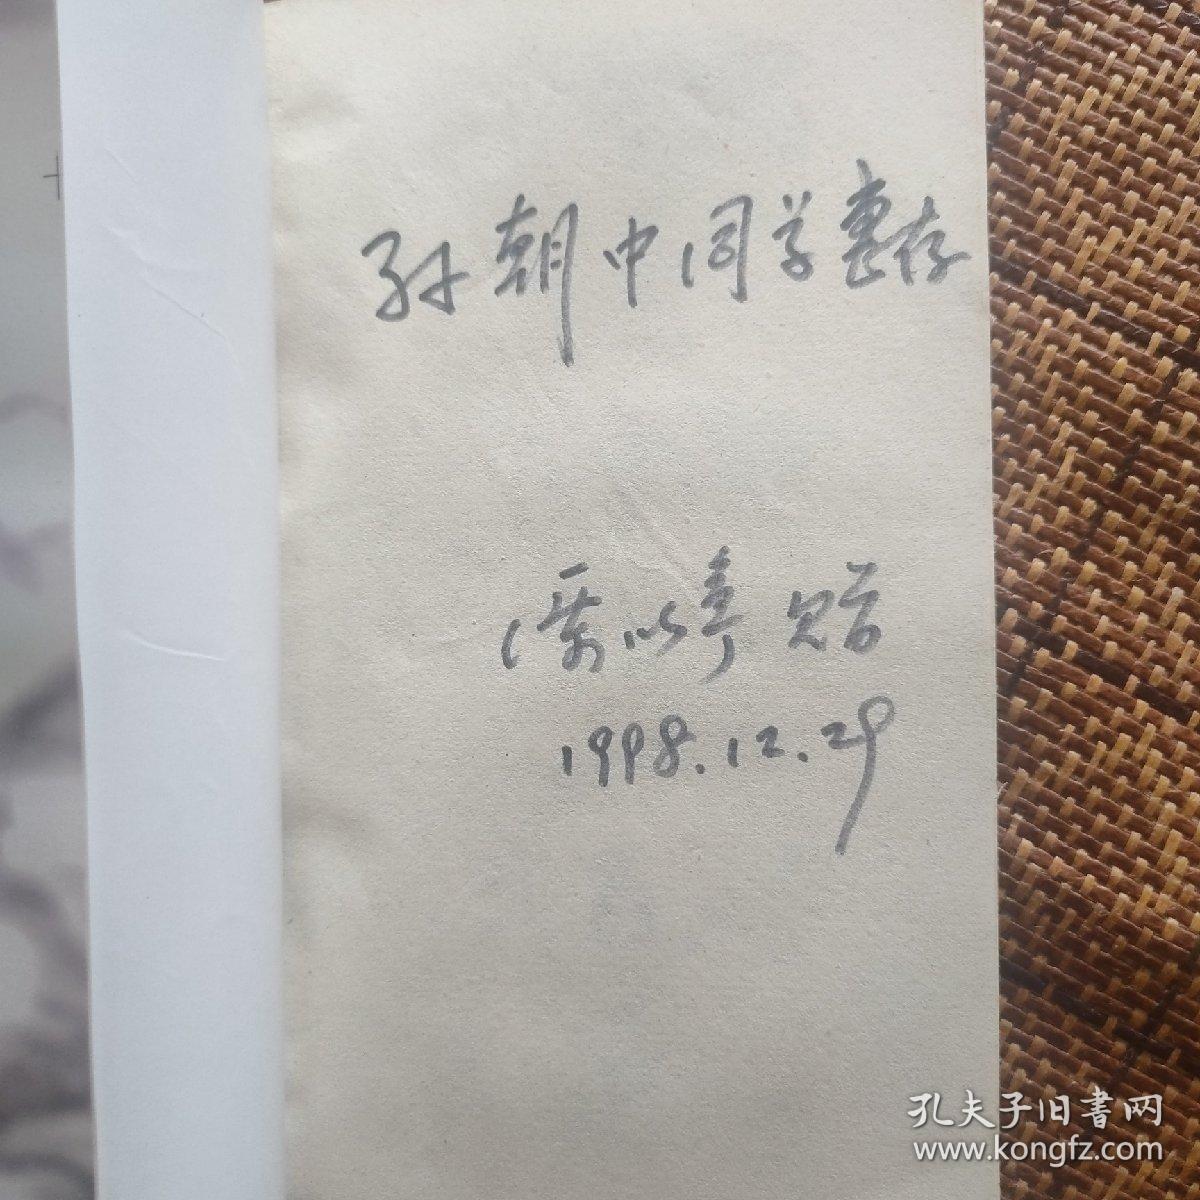 孙朝中同学惠存
厉以宁 赠
1998.12.29
孔夫子旧書网
www.kongfz.com